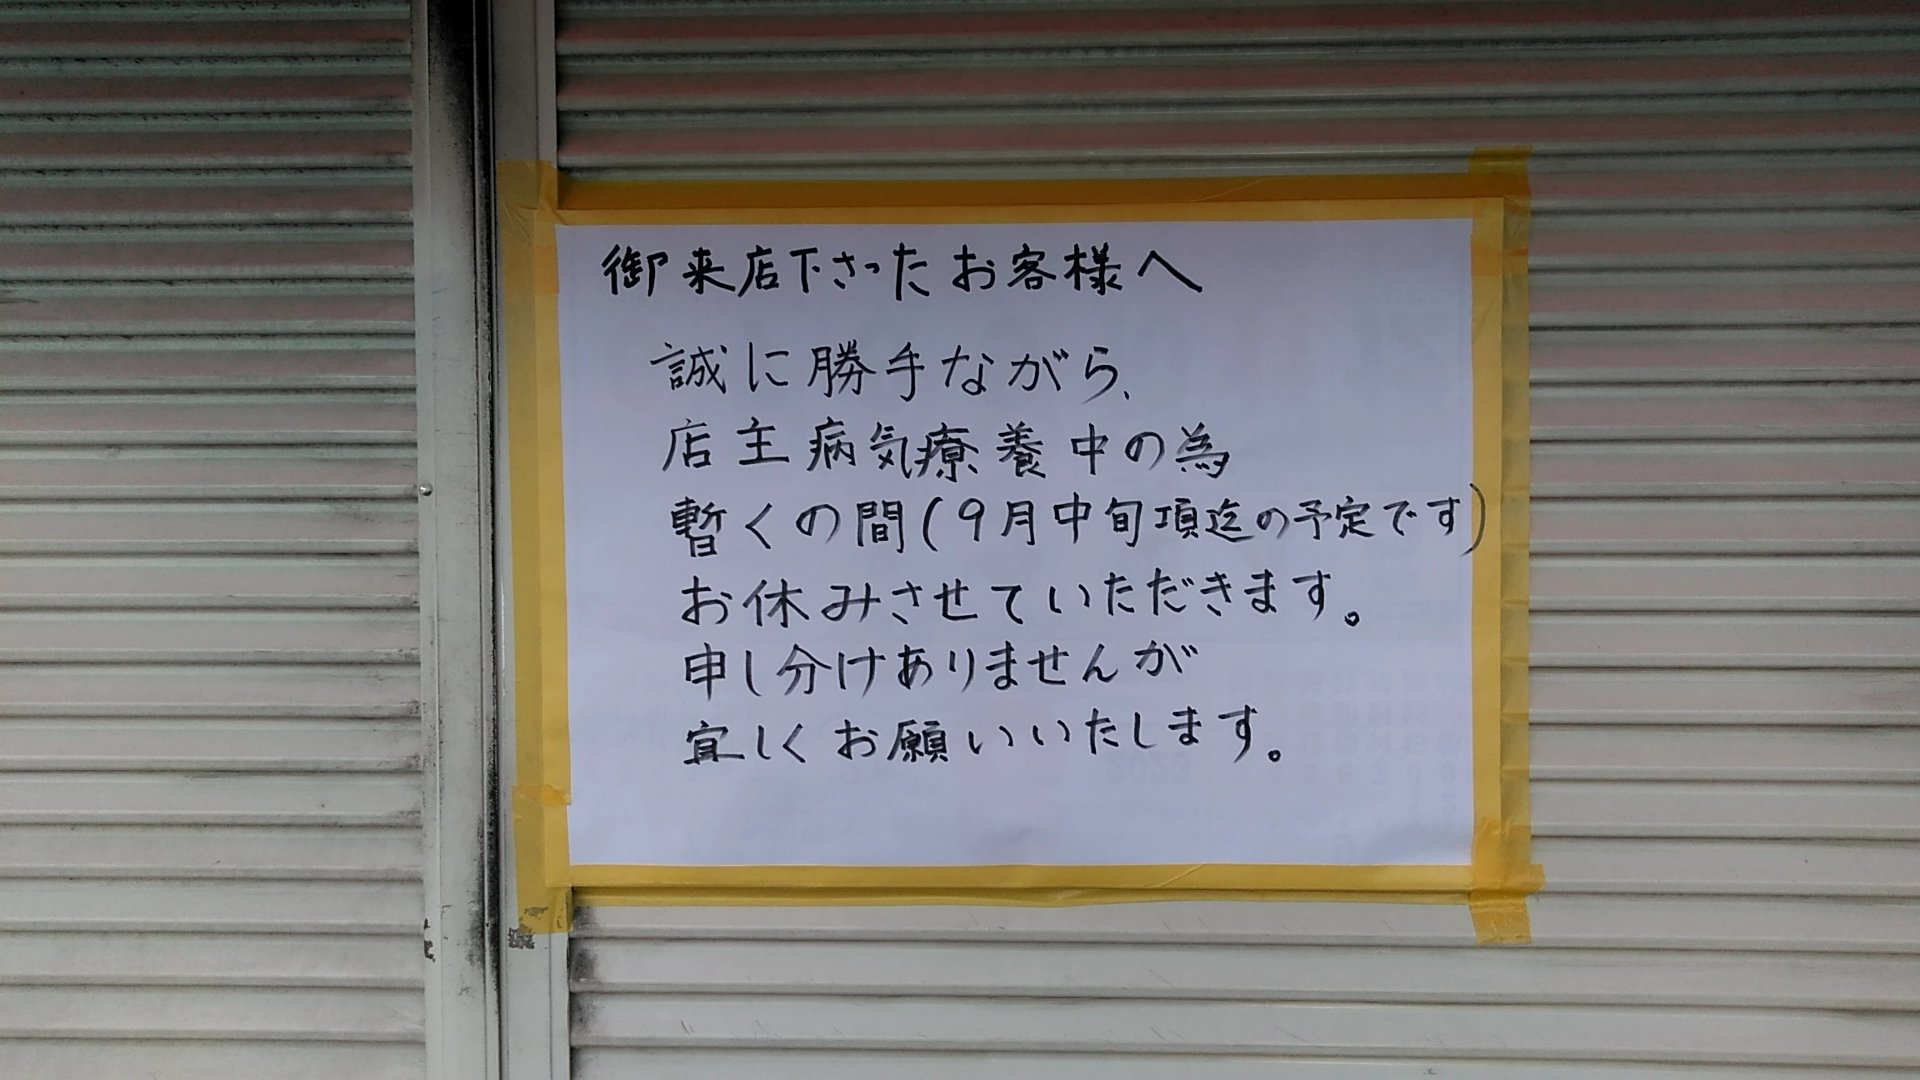 御来店下さったお客様へ
誠に勝手ながら、
店主病気療養中の為
暫くの間(9月中旬項迄の予定です)
お休みさせていただきます。
申し分けありませんが
宜しくお願いいたします。